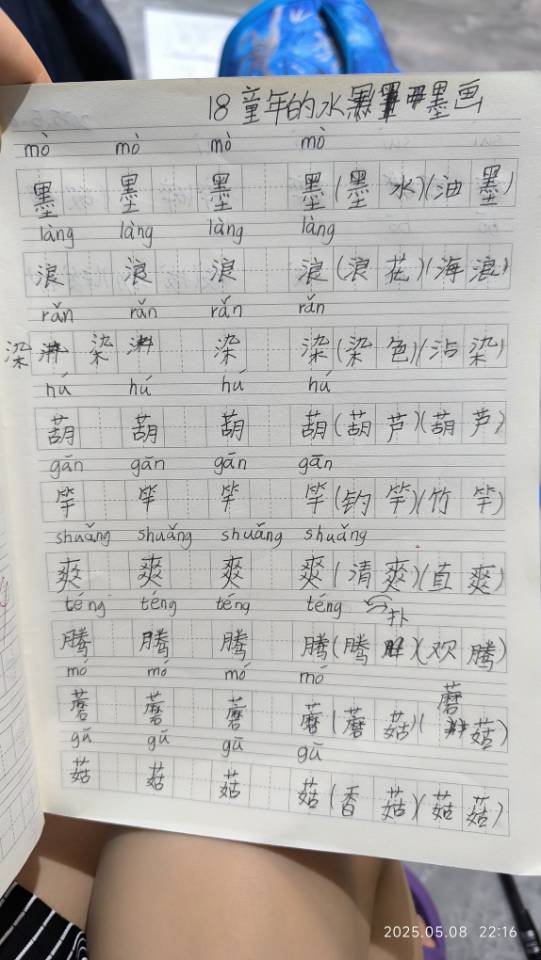 18 童年的水墨画
mò mò mò mò
墨 墨 墨 墨(墨水)(油墨)
làng làng làng làng
浪 浪 浪 浪(浪花)(海浪)
rǎn rǎn rǎn rǎn
染 染 染 染(染色)(沾染)
hú hú hú hú
葫 葫 葫 葫(葫芦)(葫芦)
gān gān gān gān
竿 竿 竿 竿(钓竿)(竹竿)
shuǎng shuǎng shuǎng shuǎng
爽 爽 爽 爽(清爽)(直爽)
téng téng téng téng 扑
腾 腾 腾 腾(腾)(欢腾)
mó mó mó mó
蘑 蘑 蘑 蘑(蘑菇)(蘑菇)
gū gū gū gū
菇 菇 菇 菇(香菇)(菇菇)
2025.05.08 22:16